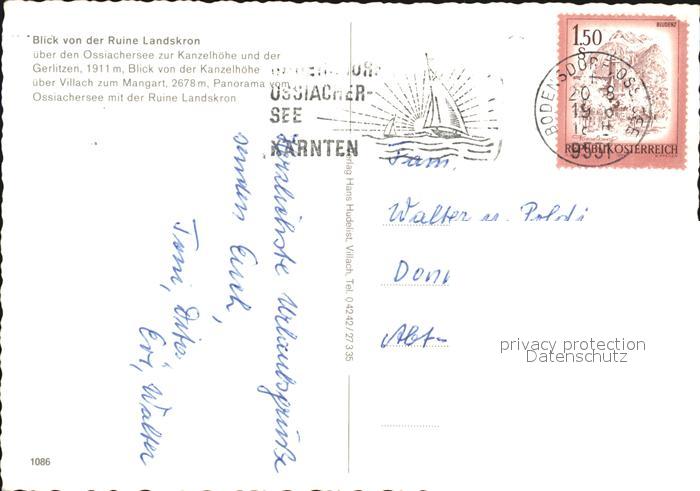 Blick von der Ruine Landskron
über den Ossiachersee zur Kanzelhöhe und der
Gerlitzen, 1911 m, Blick von der Kanzelhöhe
über Villach zum Mangart, 2678 m, Panorama vom
Ossiachersee mit der Ruine Landskron
OSSIACHER-
SEE
KÄRNTEN
Herzlichste Urlaubsgrüße
senden Euch,
Toni,
Eri, Walter
Verlag Hans Hudelist, Villach, Tel. 04242/27335
1086
BLUDENZ
1.50
S
REPUBLIK ÖSTERREICH
BODENSDORF
9551
Fam.
Walter u. Poldi
privacy protection
Datenschutz